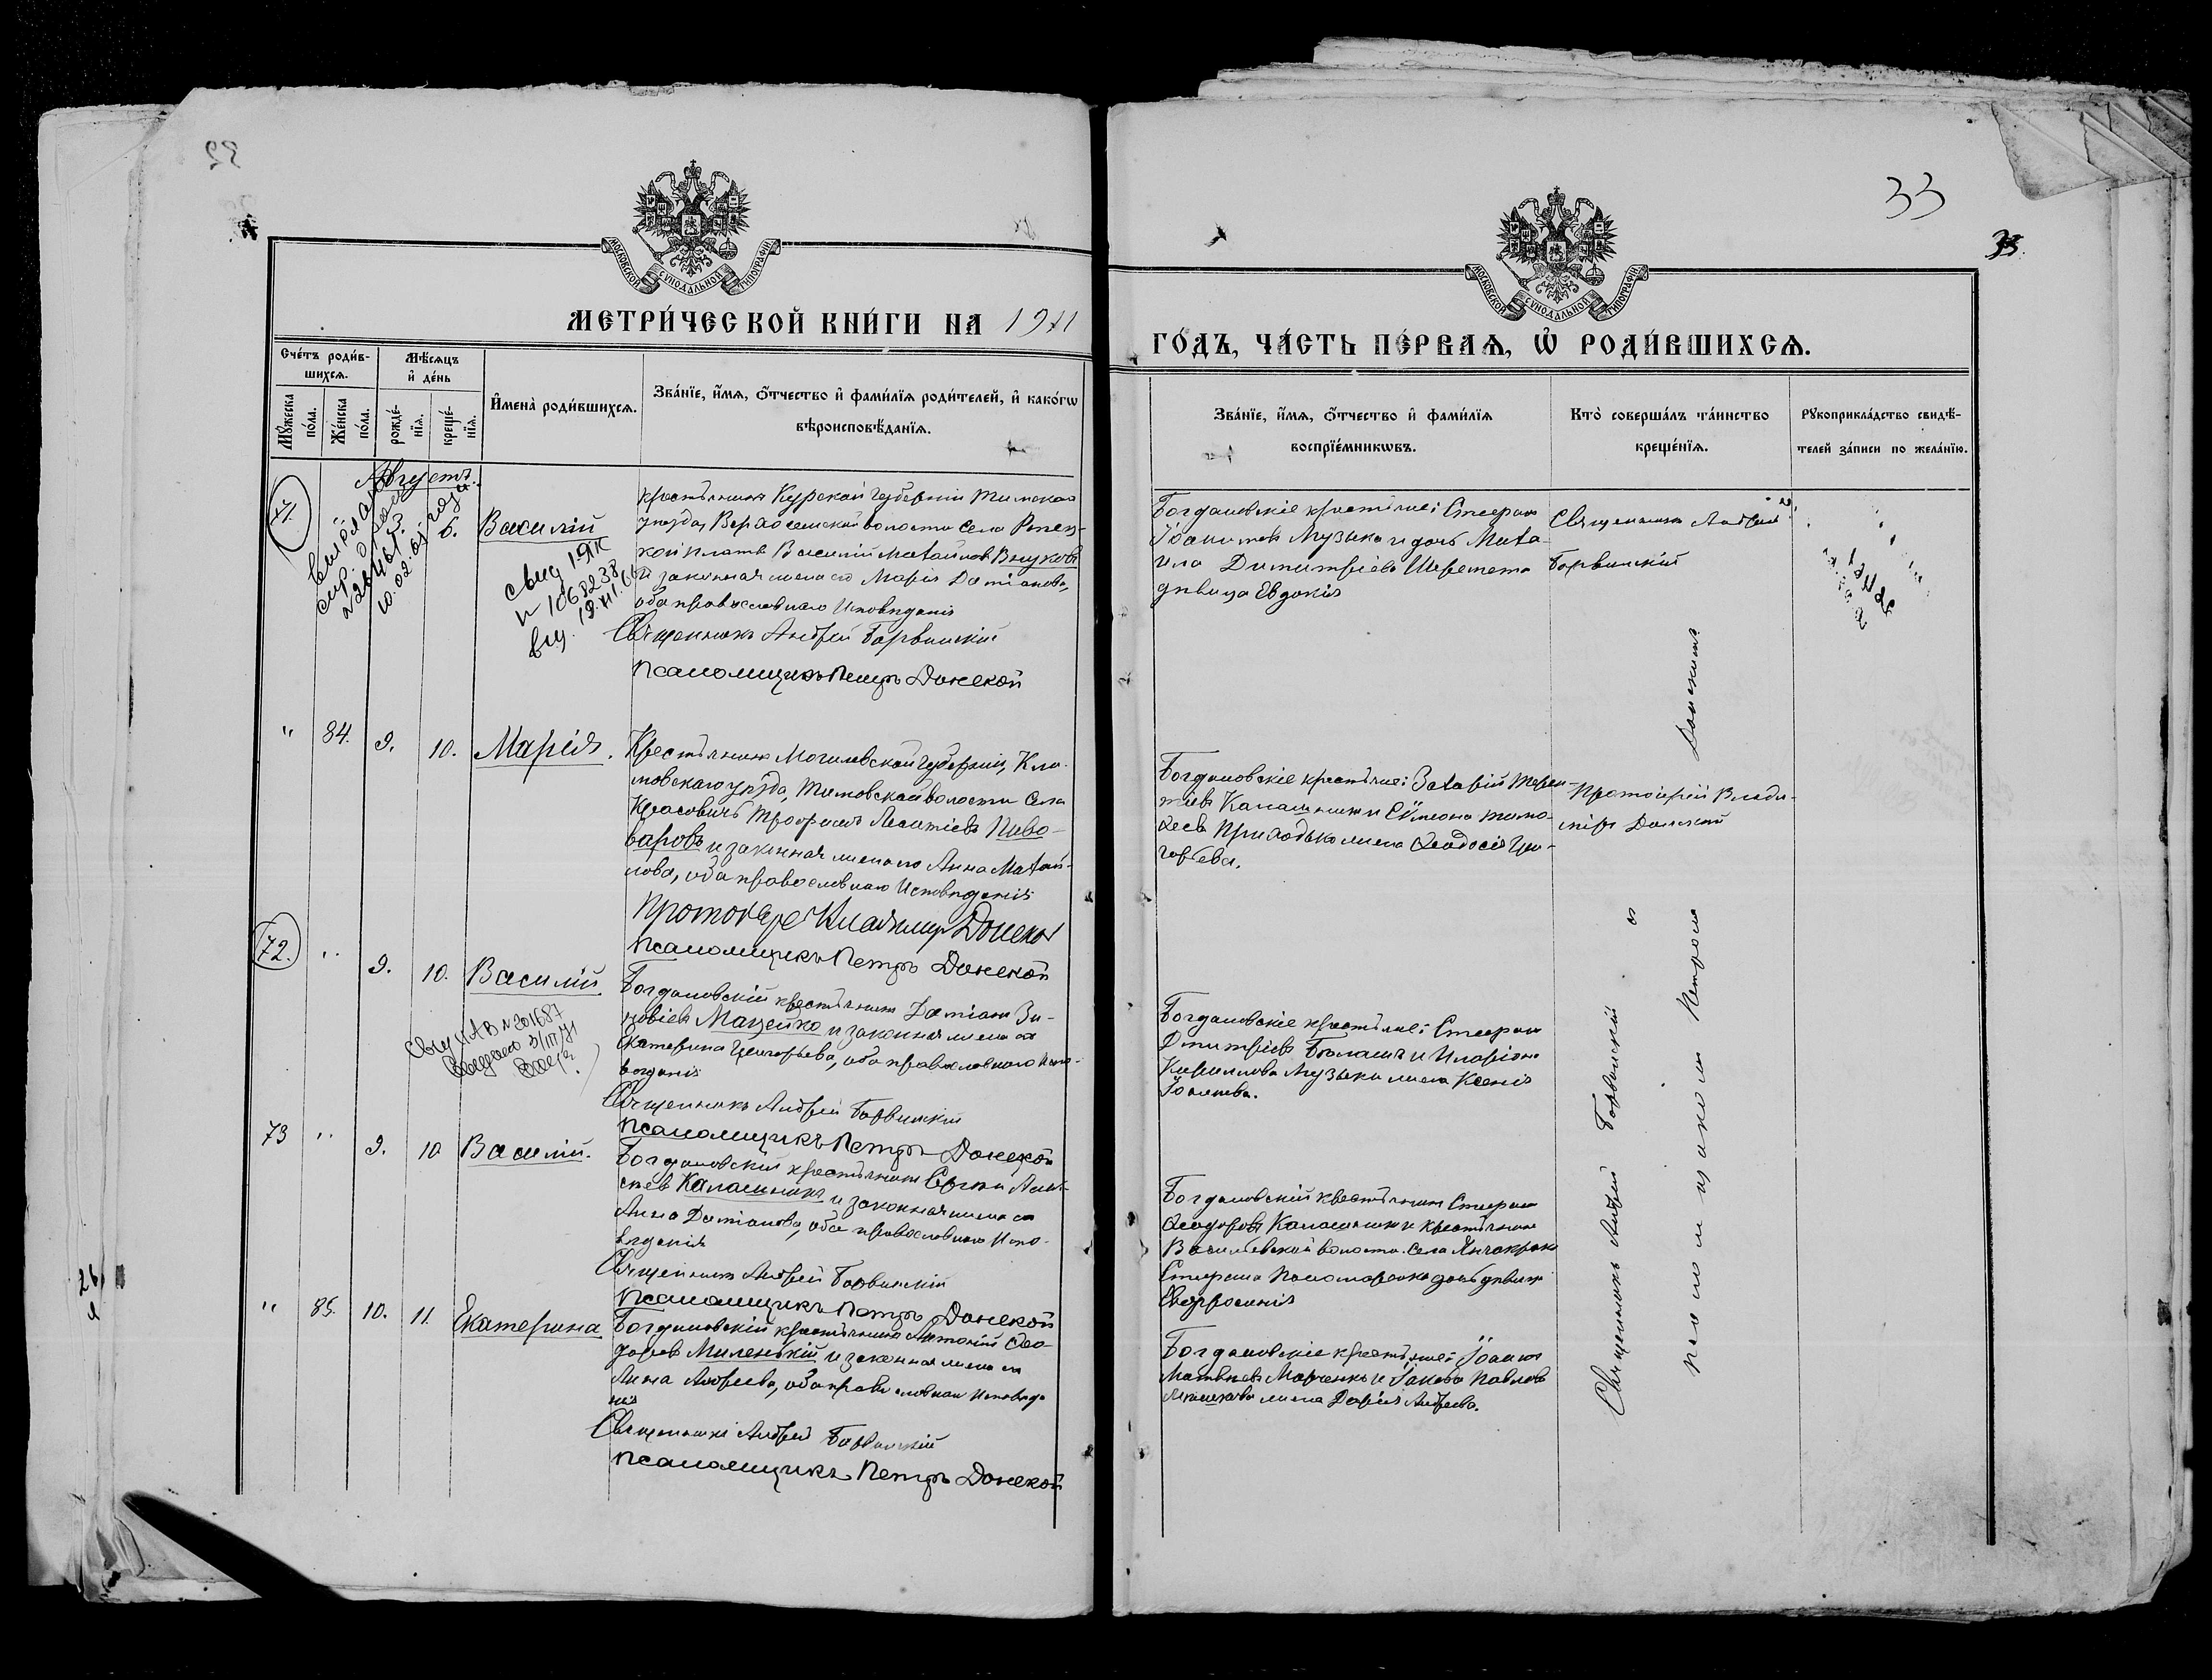 33
33.
МЕТРИ́ЧЕСКОЙ КНИ́ГИ НА 1911
ГО́ДЪ, ЧА́СТЬ ПЕ́РВАѦ, Ѡ҆ РОДИ́ВШИХСѦ.
МОСКОВСКОЙ СѴНОДАЛЬНОЙ ТИПОГРАФІИ
МОСКОВСКОЙ СѴНОДАЛЬНОЙ ТИПОГРАФІИ
Сче́тъ роди́в-
шихсѧ.
Мꙋ́жеска
по́ла.
Же́нска
по́ла.
Мѣ́сѧцъ
и҆ де́нь
рожде́-
нїѧ.
креще́-
нїѧ.
И҆мена̀ роди́вшихсѧ.
Зва́нїе, и҆́мѧ, ѻ҆́тчество и҆ фами́лїѧ роди́телей, и҆ како́гѡ
вѣроисповѣ́данїѧ.
Зва́нїе, и҆́мѧ, ѻ҆́тчество и҆ фами́лїѧ
воспрїе́мникѡвъ.
Кто̀ соверша́лъ та́инство
креще́нїѧ.
Рꙋкоприкла́дство свидѣ́-
телей за́писи по жела́нїю.
Августъ.
71.
3.
6.
Василій
10.02.61 года
свид IЯК
N 1068238
крестьянинъ Курской губерніи Тимскаго
уѣзда, Верхосемской волости села
Василій Матвіиловъ Внуковъ
и законная жена его Марія Даміанова,
оба православнаго Исповѣданія
Священникъ Андрей Барвинскій
Псаломщикъ Петръ Донской
Богдановскіе крестьяне: Стефанъ
Іоанновъ Музыка и дочь Миха-
ила Димитріева Шеремета
дѣвица Евдокія
Священникъ Андрей
Барвинскій
" 84. 9. 10. Марія.
Крестьянинъ Могилевской губерніи, Кли-
мовскаго уѣзда, Тимовской волости села
Красовичъ Трофимъ Леонтіевъ Пиво-
варовъ и законная жена его Анна Михай-
лова, оба православнаго Исповѣданія
Протоіерей Владимир Донской
Псаломщикъ Петръ Донской
Богдановскіе крестьяне: Захарій Терен-
тіевъ Калашникъ и Сѵмеона Тимо-
феева Приходько жена Феодосія Гри-
горьева.
Протоіерей Влади-
міръ Донской
72. " 9. 10. Василій
Свид ЯАВ N 201687
Выдано 3/III 71
Богдановскій крестьянинъ Даміанъ Зи-
новіевъ Мацейко и законная жена его
Екатерина Григорьева, оба православнаго Испо-
вѣданія
Священникъ Андрей Барвинскій
Псаломщикъ Петръ Донской
Богдановскіе крестьяне: Стефанъ
Дмитріевъ Балашъ и Иларіона
Кириллова Музыки жена Ксенія
Іоаннова.
73 " 9. 10 Василій.
Богдановскій крестьянинъ Сергій Алек-
сѣевъ Калашникъ и законная жена его
Анна Даміанова, оба православнаго Испо-
вѣданія
Священникъ Андрей Барвинскій
Псаломщикъ Петръ Донской
Богдановскій крестьянинъ Стефанъ
Феодоровъ Калашникъ и крестьянина
Васильевской волости села Янчокрака
Стефана Пономаренко дочь дѣвица
Евфросинія
" 85. 10. 11. Екатерина
Богдановскій крестьянинъ Антоній Фео-
доровъ Миленькій и законная жена его
Анна Андреева, оба православнаго Исповѣда
нія
Священникъ Андрей Барвинскій
Псаломщикъ Петръ Донской
Богдановскіе крестьяне: Іоаннъ
Матвѣевъ Марченко и Іакова Павлова
жена Дарія Андреева.
Священникъ Андрей Барвинскій съ
псаломщикомъ Петромъ Донскимъ